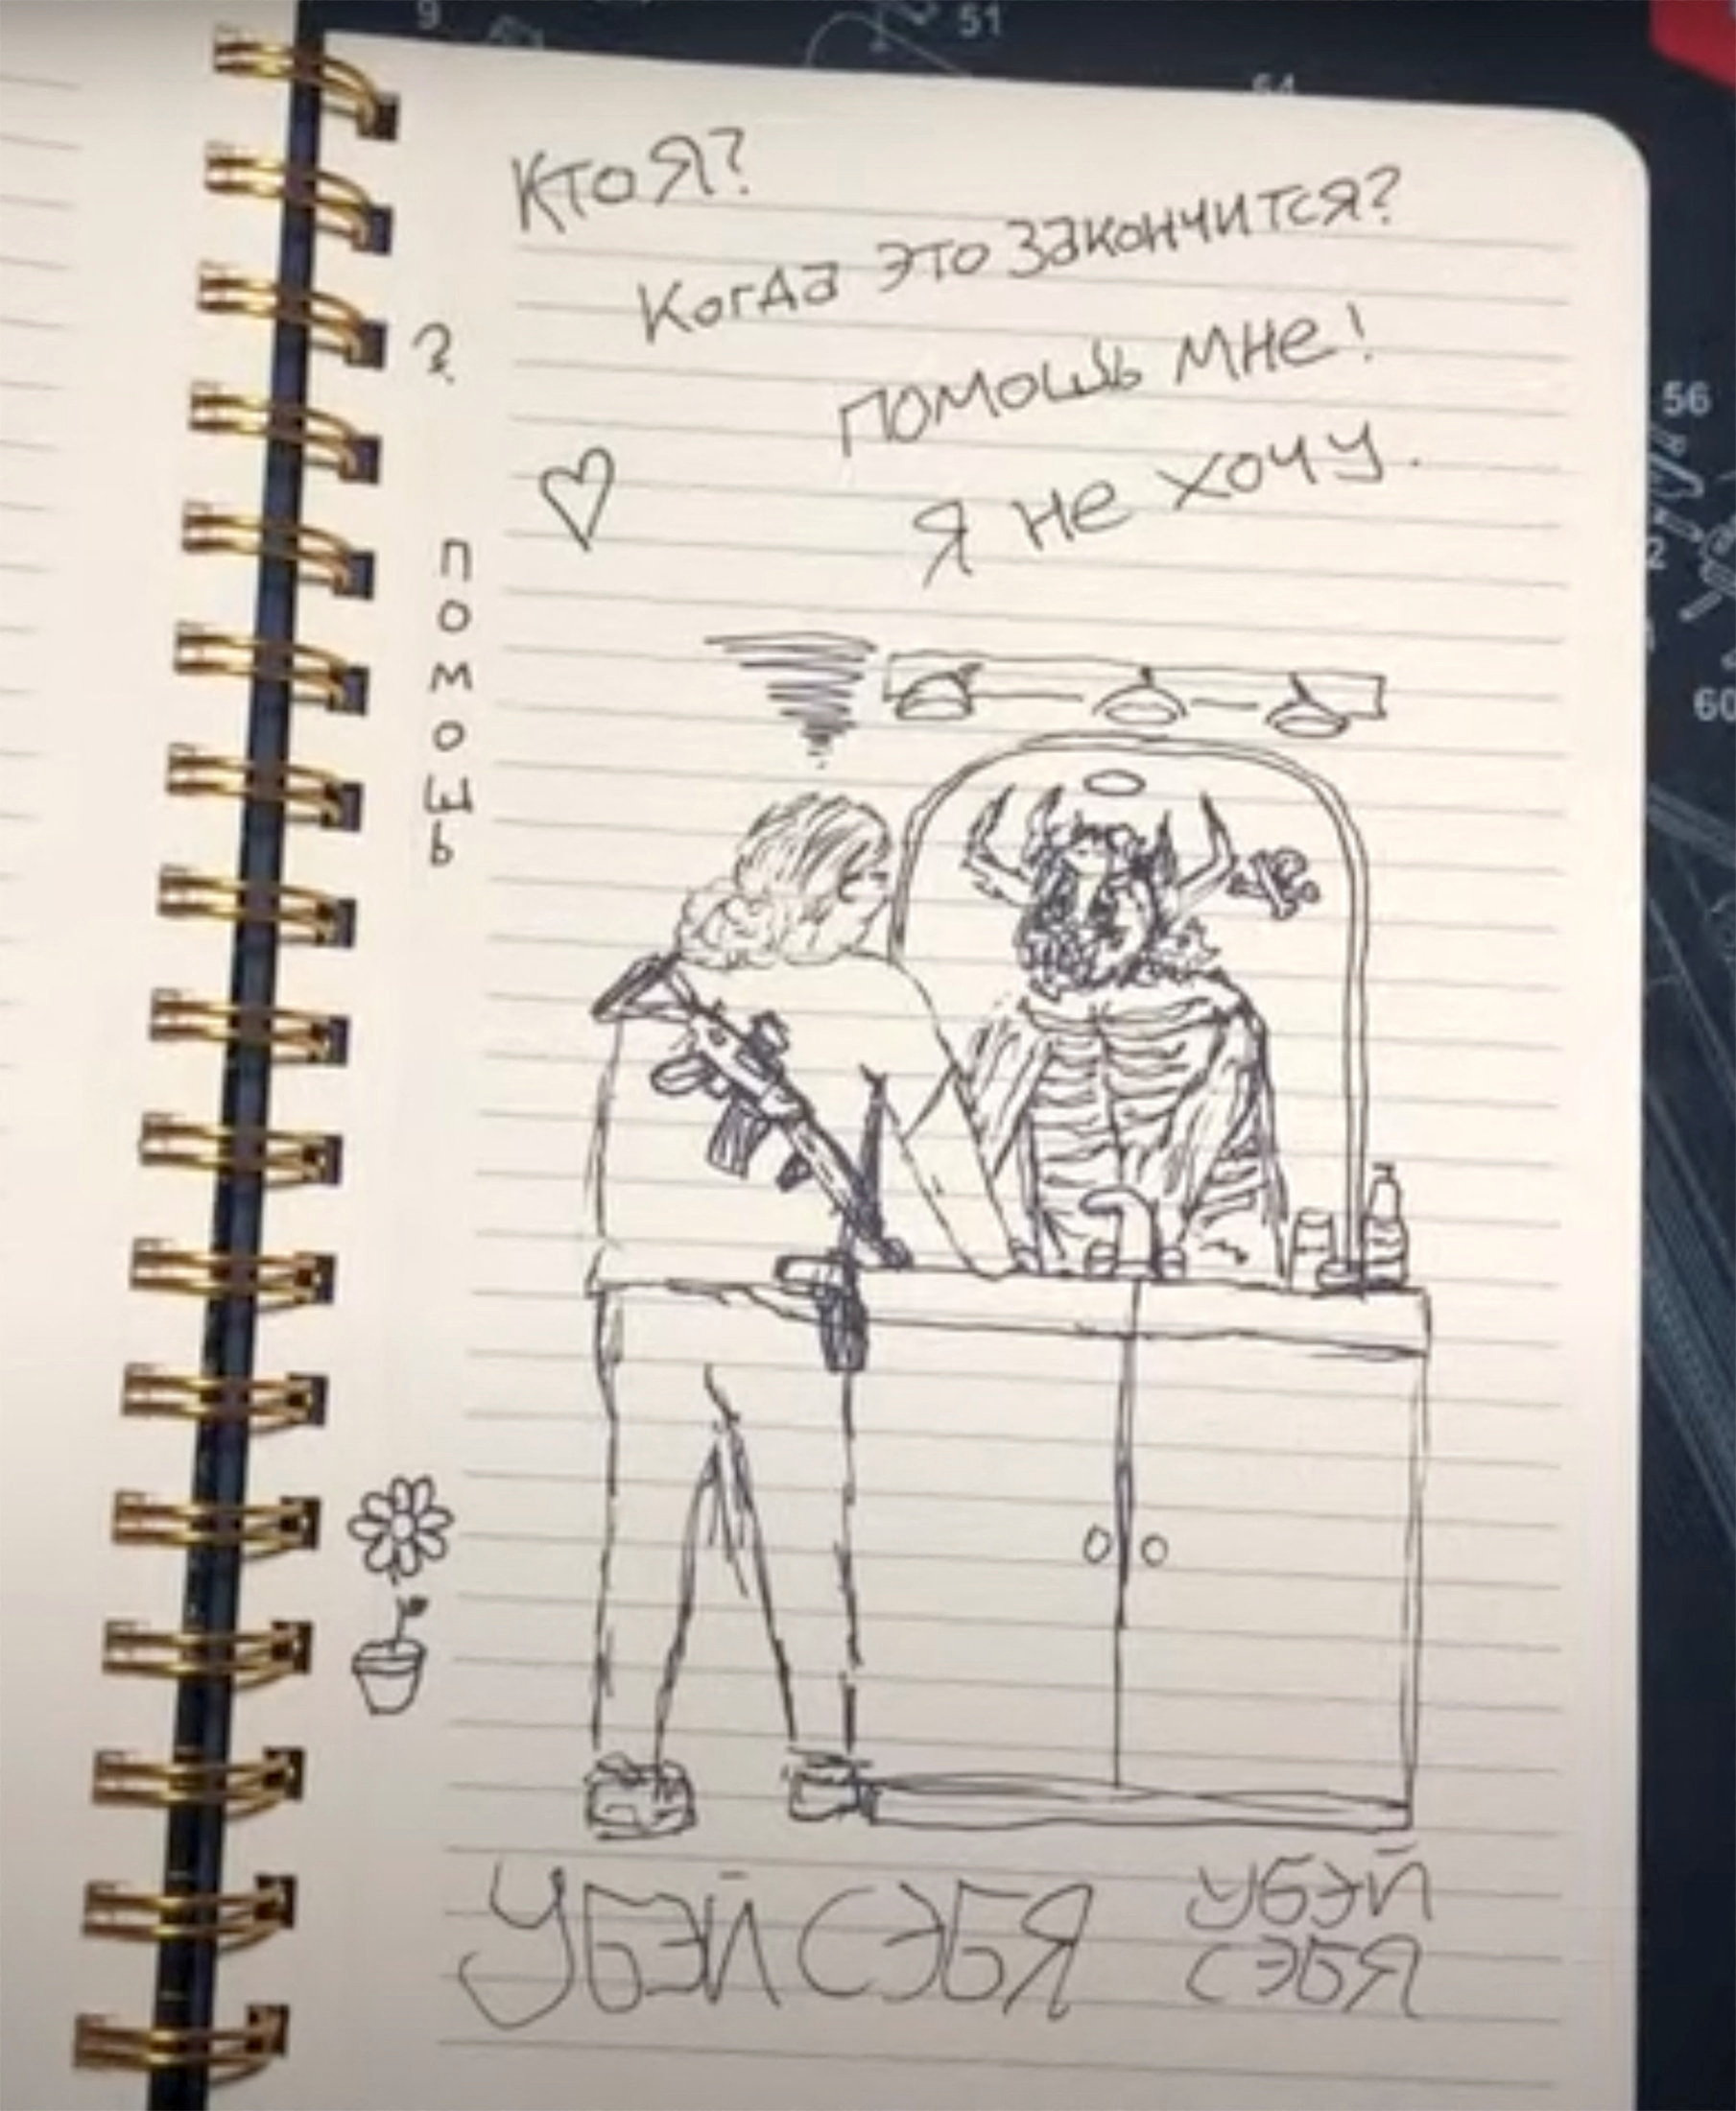 9
51
Кто Я?
Когда это закончится?
?
помошь мне!
Я не хочу.
помошь
56
60
УБЭЙ СЭБЯ
УБЭЙ
СЭБЯ